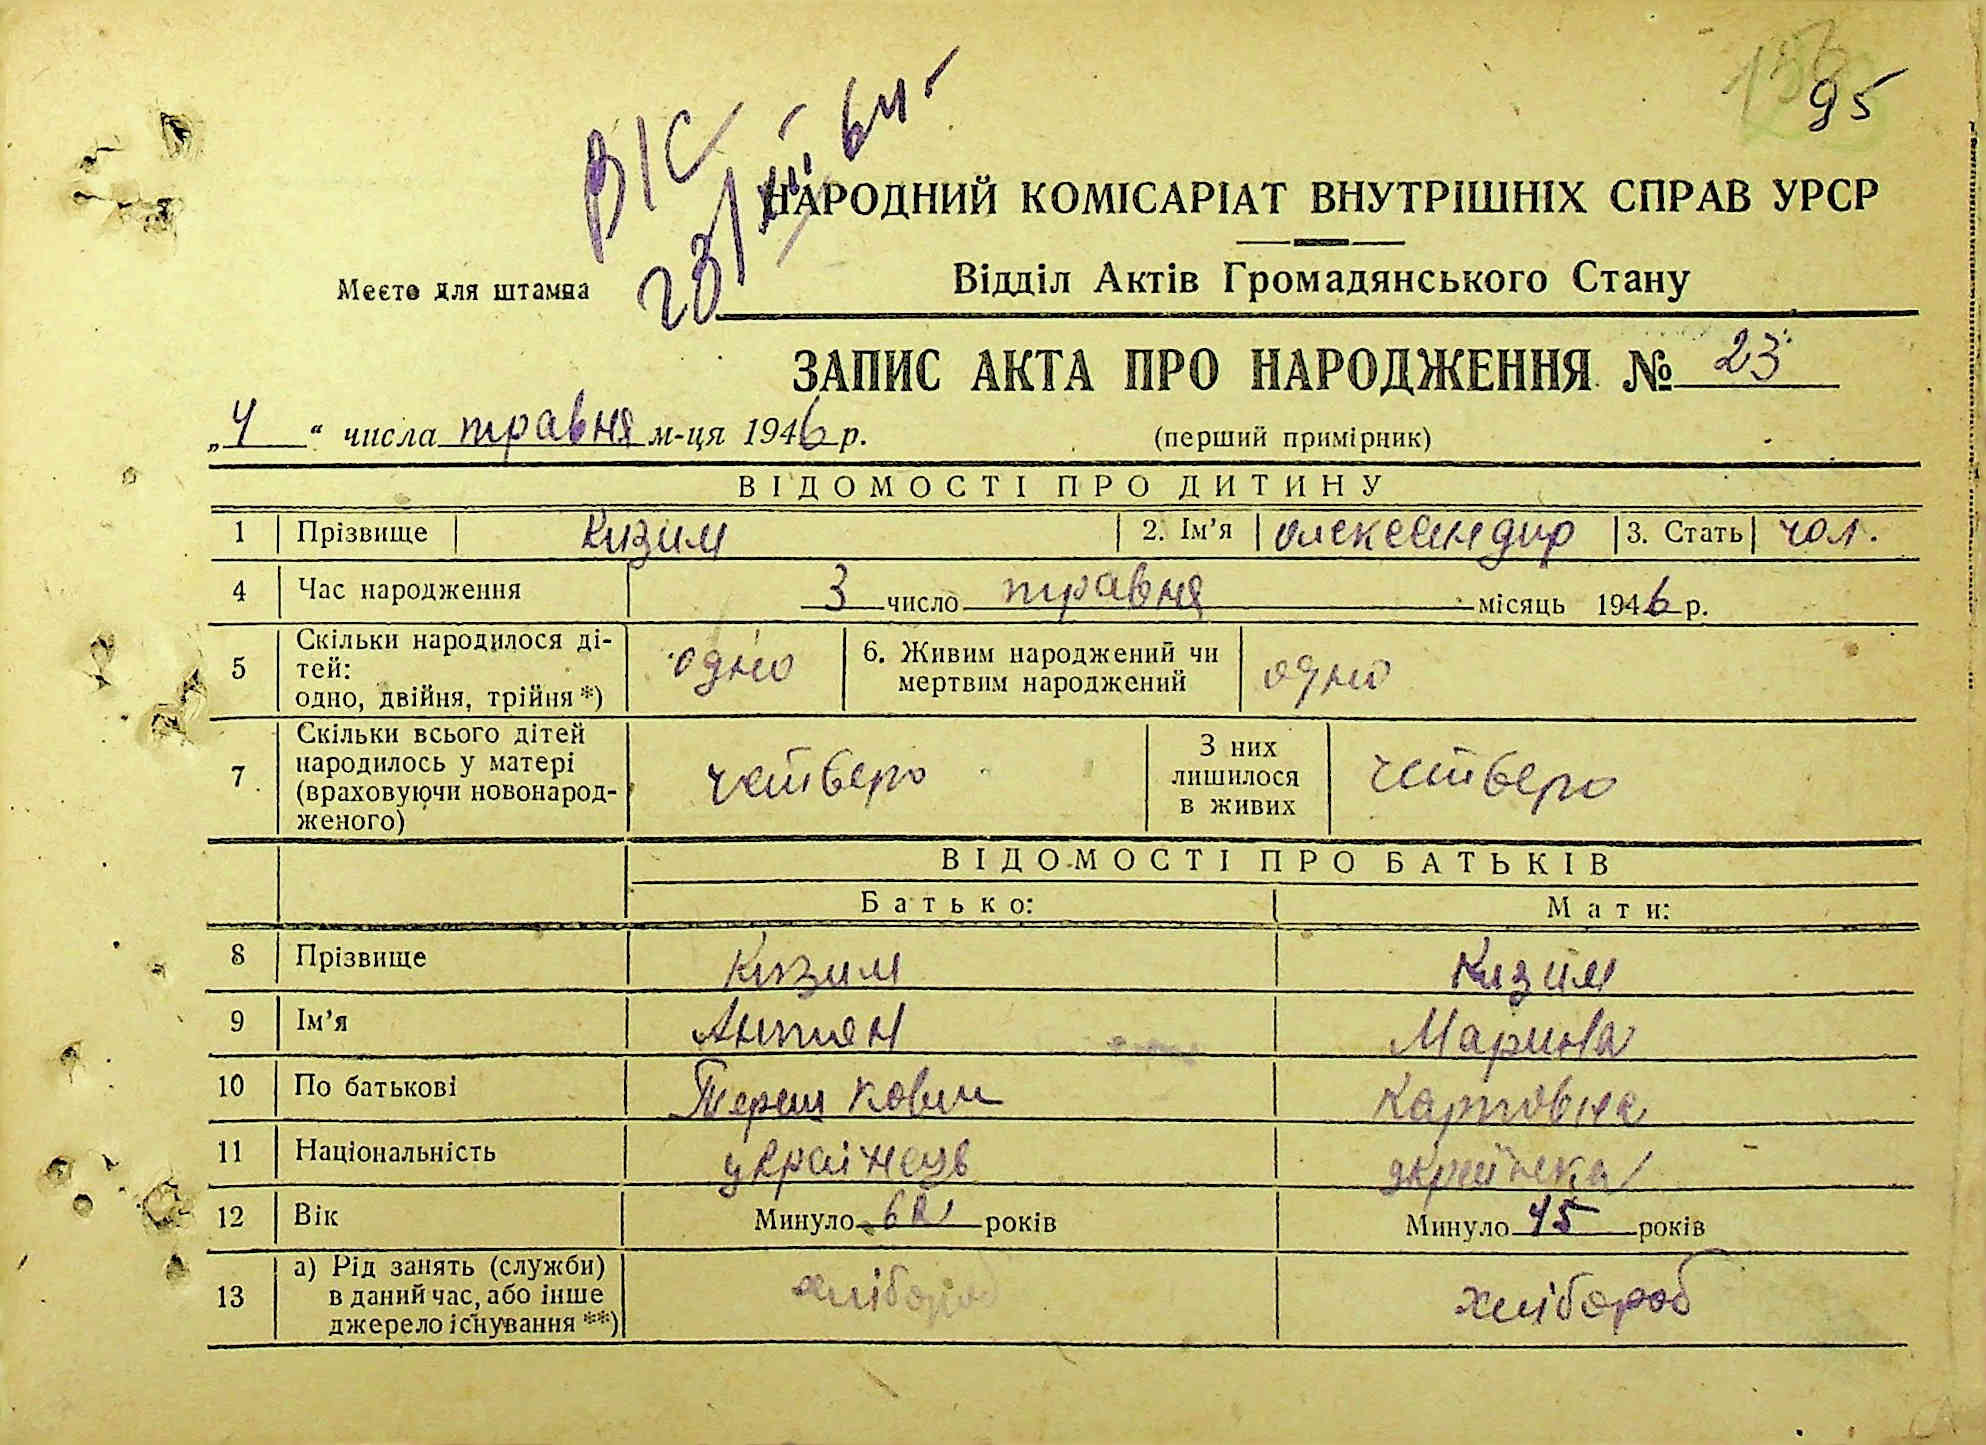 95
ВІС
23/III 64
НАРОДНИЙ КОМІСАРІАТ ВНУТРІШНІХ СПРАВ УРСР
Место для штампа
Відділ Актів Громадянського Стану
ЗАПИС АКТА ПРО НАРОДЖЕННЯ № 23
„4“ числа травня м-ця 1946 р. (перший примірник)
ВІДОМОСТІ ПРО ДИТИНУ
1 Прізвище Кизим 2. Ім’я Олександир 3. Стать чол.
4 Час народження 3 число травня місяць 1946 р.
5 Скільки народилося дітей: одно, двійня, трійня *) одно 6. Живим народжений чи мертвим народжений одно
7 Скільки всього дітей народилось у матері (враховуючи новонародженого) четверо З них лишилося в живих четверо
ВІДОМОСТІ ПРО БАТЬКІВ
Батько: Мати:
8 Прізвище Кизим Кизим
9 Ім’я Антон Марина
10 По батькові Терешкович Карповна
11 Національність українець українка
12 Вік Минуло років Минуло 45 років
13 а) Рід занять (служби) в даний час, або інше джерело існування **) хлібороб хлібороб